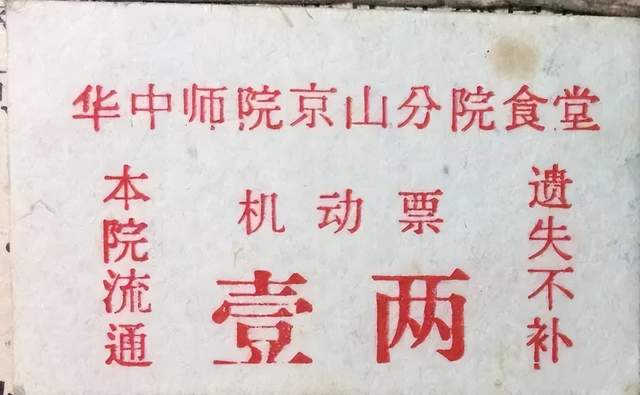 华中师院京山分院食堂
本院流通
机动票
壹两
遗失不补